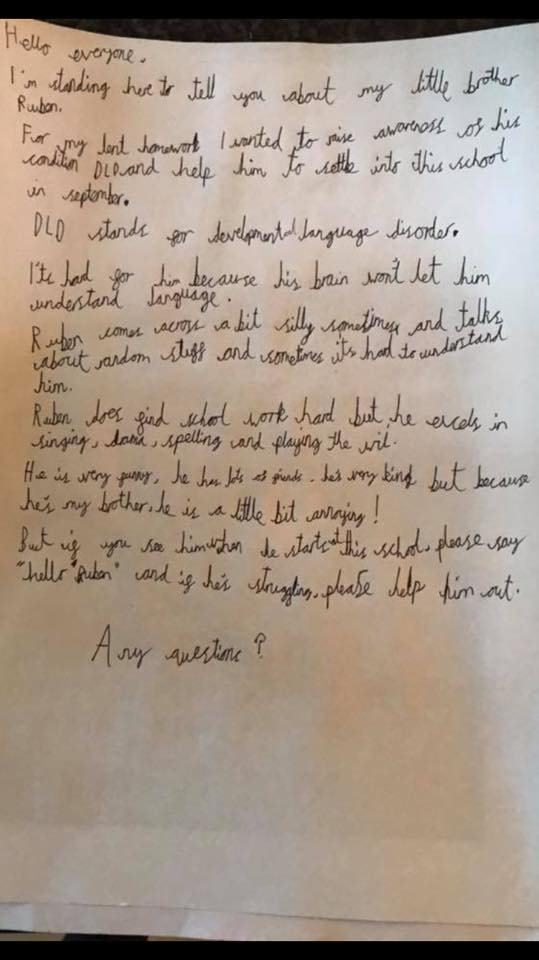 Hello everyone.
I'm standing here to tell you about my little brother
Ruben.
For my lent homework I wanted to raise awareness of his
condition DLD and help him to settle into this school
in september.
DLD stands for developmental language disorder.
It's hard for him because his brain won't let him
understand language.
Ruben comes across a bit silly sometimes and talks
about random stuff and sometimes its hard to understand
him.
Ruben does find school work hard but he excels in
singing, drama, spelling and playing the wii.
He is very funny, he has lots of friends. he's very kind but because
he's my brother, he is a little bit annoying!
But if you see him when he starts at this school, please say
"hello Ruben" and if he's struggling, please help him out.
Any questions?